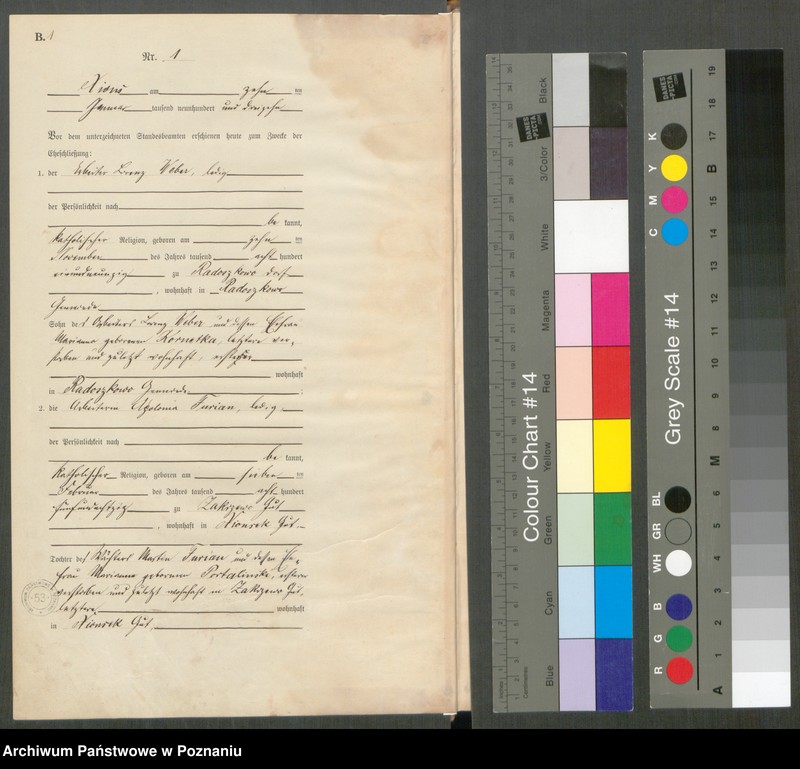 B. 1
Nr. 1
Xions am zehn ten
Januar tausend neunhundert und dreizehn
Vor dem unterzeichneten Standesbeamten erschienen heute zum Zwecke der
Eheschließung:
1. der Arbeiter Lorenz Weber, ledig
der Persönlichkeit nach
be kannt,
katholischer Religion, geboren am zehn ten
November des Jahres tausend acht hundert
zu Radoszkowo Dorf
, wohnhaft in Radoszkowo
Gemeinde
Sohn des Arbeiters Lorenz Weber und dessen Ehefrau
Marianna geborenen Kornetka, letztere ver-
storben und zuletzt wohnhaft, ersterer
wohnhaft
in Radoszkowo Gemeinde ;
2. die Arbeiterin Apolonia Furian, ledig
der Persönlichkeit nach
be kannt,
katholischer Religion, geboren am sieben ten
Februar des Jahres tausend acht hundert
fünfundachtzig zu Zakrzewo Gut
, wohnhaft in Xionsek Gut
Tochter des Wächters Martin Furian und dessen Ehe-
frau Marianna geborenen, ersterer
verstorben und zuletzt wohnhaft in Zakrzewo Gut,
letztere wohnhaft
in Xionsek Gut.
53
Colour Chart #14
Black
3/Color
White
Magenta
Red
Yellow
Green
Cyan
Blue
DANES
PICTA
.COM
Inches
Centimetres
Grey Scale #14
C M Y K
R G B
WH GR BL
DANES
PICTA
.COM
A 1 2 3 4 5 6 M 8 9 10 11 12 13 14 15 B 17 18 19
Archiwum Państwowe w Poznaniu